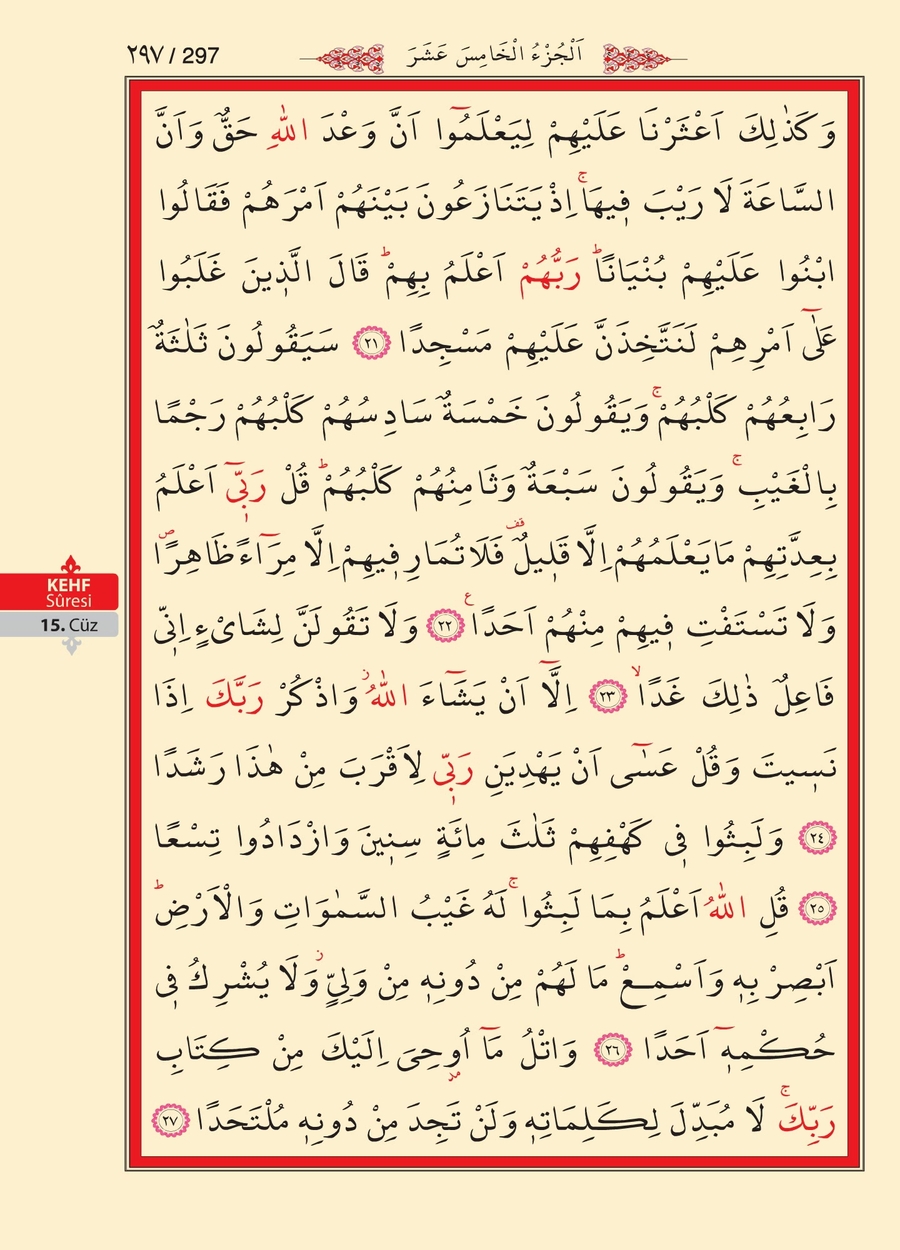 ٢٩٧ / 297
اَلْجُزْءُ الْخَامِسَ عَشَرَ
وَكَذٰلِكَ اَعْثَرْنَا عَلَيْهِمْ لِيَعْلَمُٓوا اَنَّ وَعْدَ اللّٰهِ حَقٌّ وَاَنَّ
السَّاعَةَ لَا رَيْبَ ف۪يهَاۚ اِذْ يَتَنَازَعُونَ بَيْنَهُمْ اَمْرَهُمْ فَقَالُوا
ابْنُوا عَلَيْهِمْ بُنْيَانًاۜ رَبُّهُمْ اَعْلَمُ بِهِمْۜ قَالَ الَّذ۪ينَ غَلَبُوا
عَلٰٓى اَمْرِهِمْ لَنَتَّخِذَنَّ عَلَيْهِمْ مَسْجِدًا ﴿٢١﴾ سَيَقُولُونَ ثَلٰثَةٌ
رَابِعُهُمْ كَلْبُهُمْۚ وَيَقُولُونَ خَمْسَةٌ سَادِسُهُمْ كَلْبُهُمْ رَجْمًا
بِالْغَيْبِۚ وَيَقُولُونَ سَبْعَةٌ وَثَامِنُهُمْ كَلْبُهُمْۜ قُلْ رَبّ۪ٓي اَعْلَمُ
بِعِدَّتِهِمْ مَا يَعْلَمُهُمْ اِلَّا قَل۪يلٌ۠ فَلَا تُمَارِ ف۪يهِمْ اِلَّا مِرَٓاءً ظَاهِرًاۖ
وَلَا تَسْتَفْتِ ف۪يهِمْ مِنْهُمْ اَحَدًا۟ ﴿٢٢﴾ وَلَا تَقُولَنَّ لِشَا۬يْءٍ اِنّ۪ي
فَاعِلٌ ذٰلِكَ غَدًاۙ ﴿٢٣﴾ اِلَّٓا اَنْ يَشَٓاءَ اللّٰهُۘ وَاذْكُرْ رَبَّكَ اِذَا
نَس۪يتَ وَقُلْ عَسٰٓى اَنْ يَهْدِيَنِ رَبّ۪ي لِاَقْرَبَ مِنْ هٰذَا رَشَدًا
﴿٢٤﴾ وَلَبِثُوا ف۪ي كَهْفِهِمْ ثَلٰثَ مِائَةٍ سِن۪ينَ وَازْدَادُوا تِسْعًا
﴿٢٥﴾ قُلِ اللّٰهُ اَعْلَمُ بِمَا لَبِثُواۚ لَهُ غَيْبُ السَّمٰوَاتِ وَالْاَرْضِۜ
اَبْصِرْ بِه۪ وَاَسْمِعْۜ مَا لَهُمْ مِنْ دُونِه۪ مِنْ وَلِيٍّۘ وَلَا يُشْرِكُ ف۪ي
حُكْمِه۪ٓ اَحَدًا ﴿٢٦﴾ وَاتْلُ مَٓا اُو۫حِيَ اِلَيْكَ مِنْ كِتَابِ
رَبِّكَۚ لَا مُبَدِّلَ لِكَلِمَاتِه۪ وَلَنْ تَجِدَ مِنْ دُونِه۪ مُلْتَحَدًا ﴿٢٧﴾
KEHF
Sûresi
15. Cüz